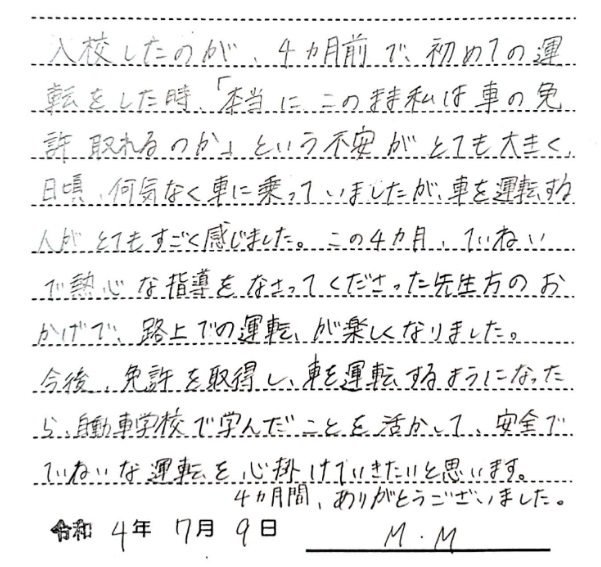 入校したのが、4ヵ月前で、初めての運
転をした時、「本当にこのまま私は車の免
許取れるのか」という不安がとても大きく、
日頃、何気なく車に乗っていましたが、車を運転する
人がとてもすごく感じました。この4ヵ月、ていねい
で熱心な指導をなさってくださった先生方のお
かげで、路上での運転が楽しくなりました。
今後、免許を取得し、車を運転するようになった
ら、自動車学校で学んだことを活かして、安全で
ていねいな運転を心掛けていきたいと思います。
4ヵ月間、ありがとうございました。
令和 4年 7月 9日 M.M